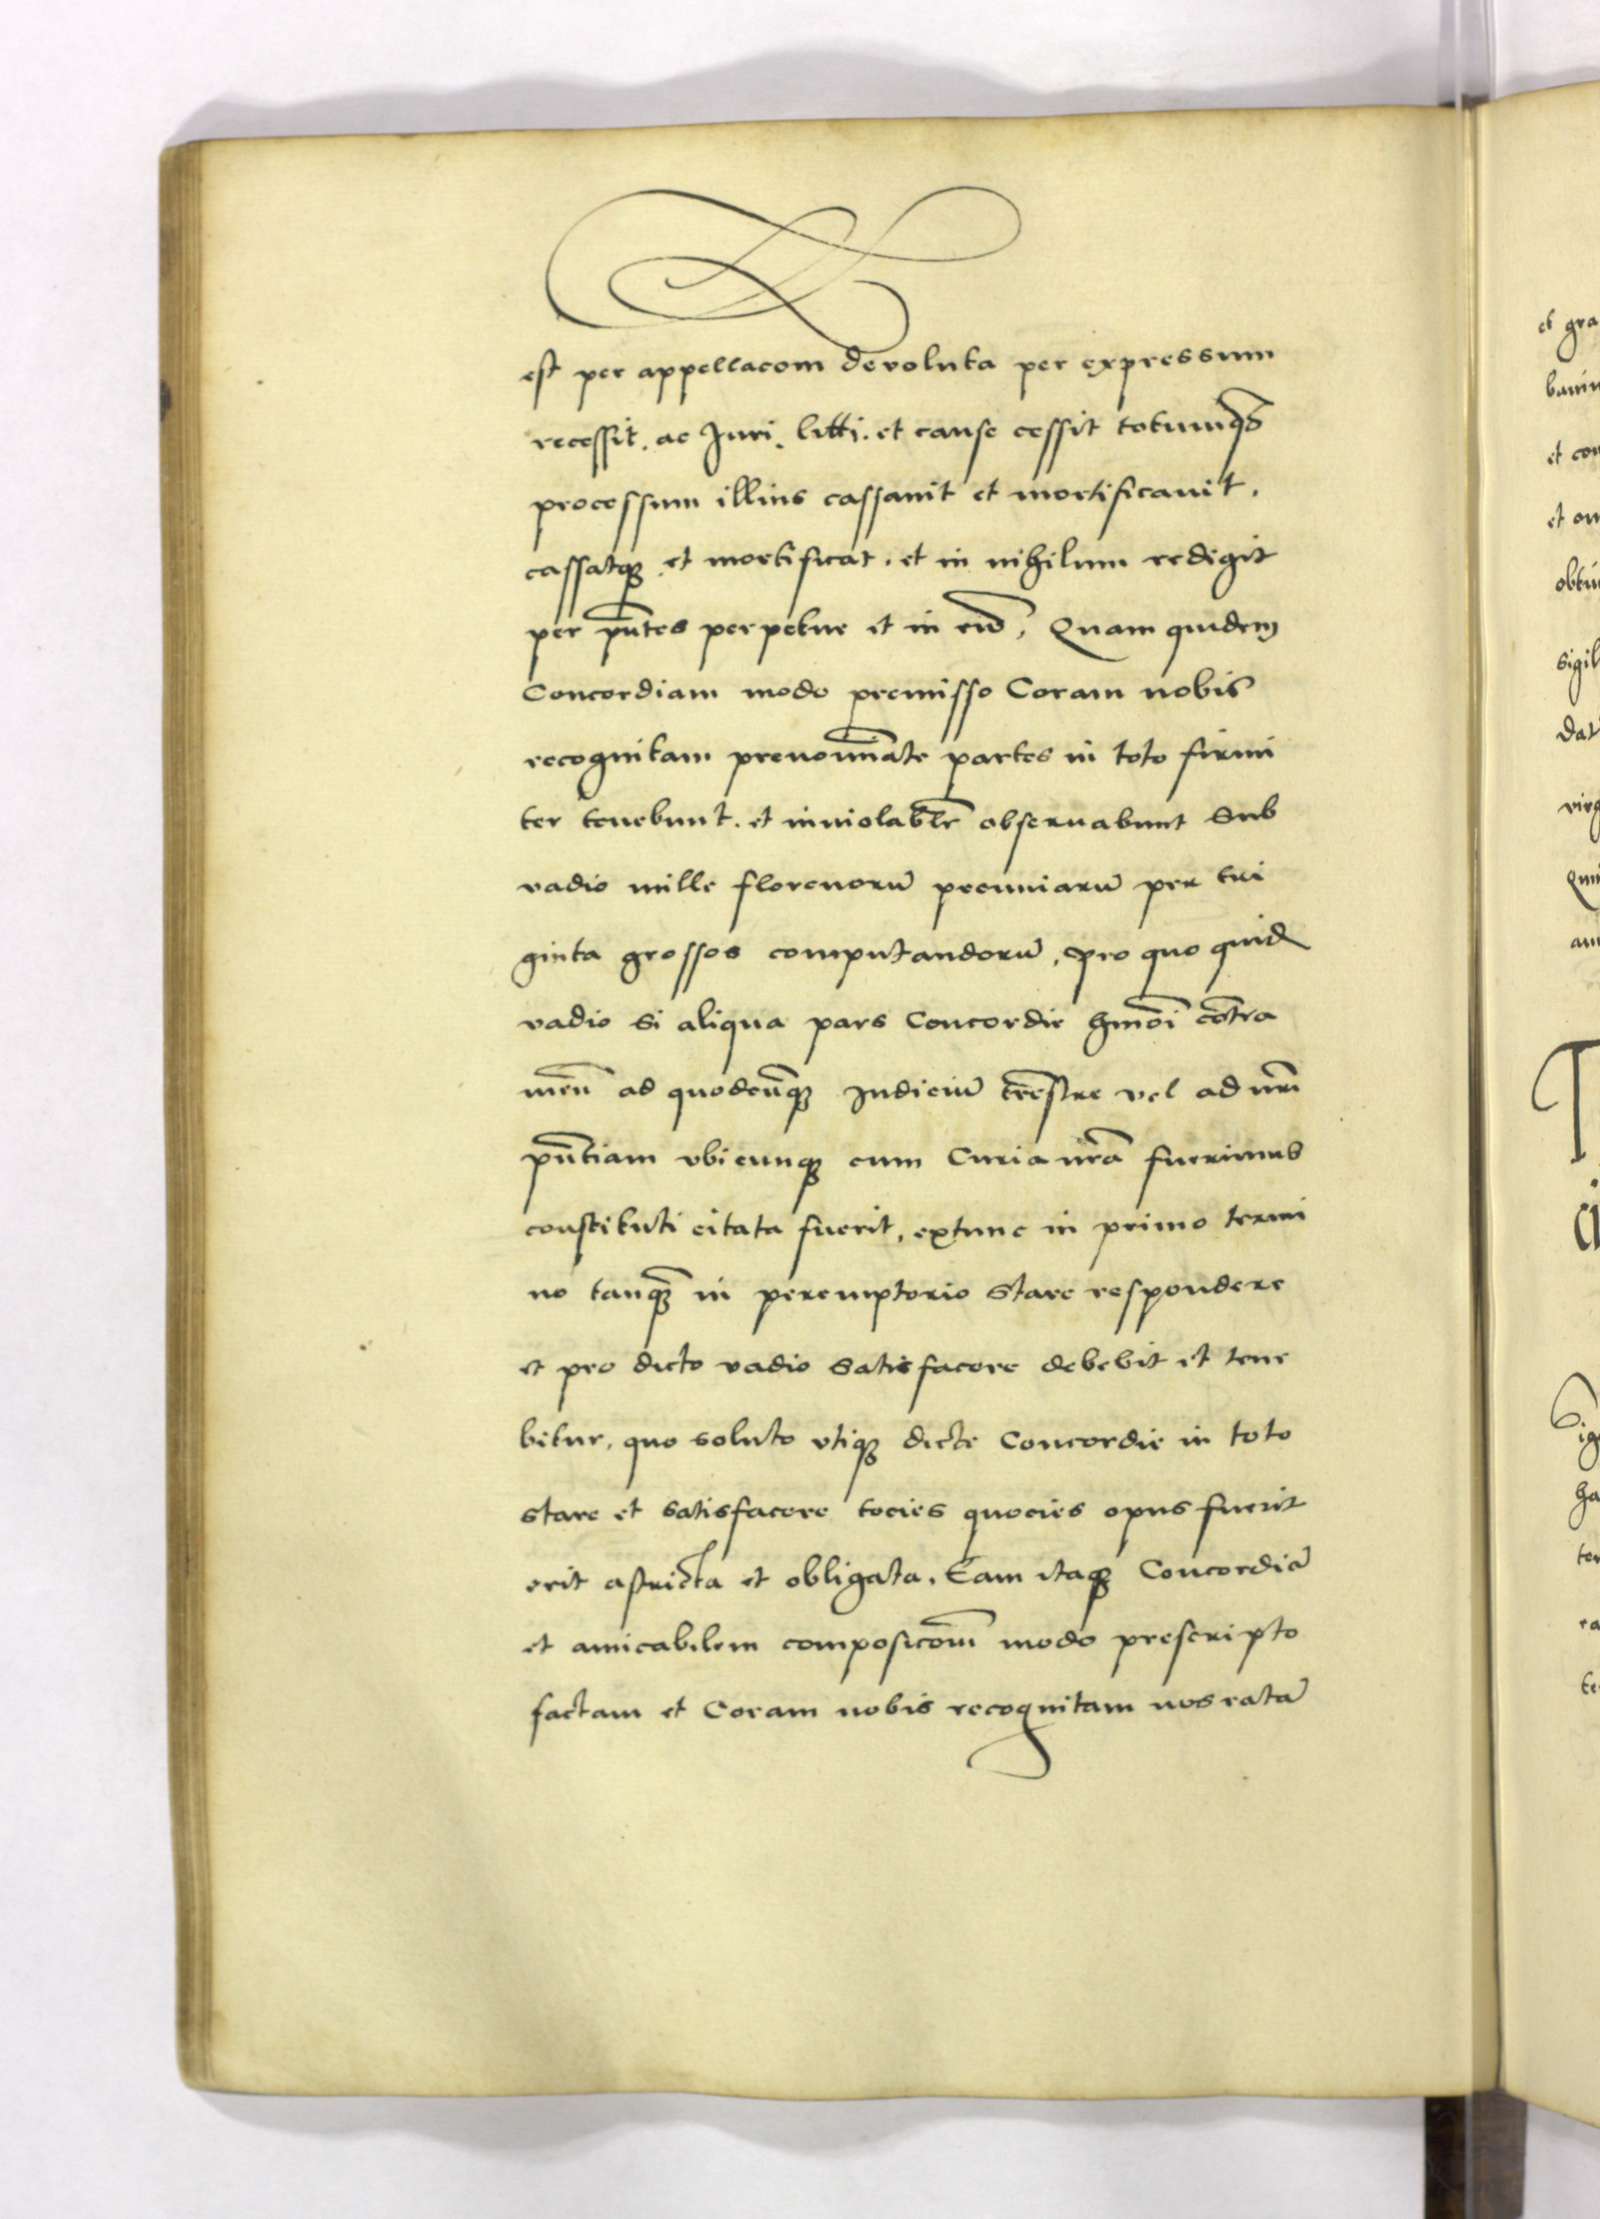 est per appellacom devoluta per expressum
recessit. ac Juri. litti. et cause cessit totumq3
processum illius cassauit et mortificauit.
cassatq3 et mortificat. et in nihilum redigit
per pn̄tes perpetue et in euū, Quam quidem
Concordiam modo premisso Coram nobis
recognitam prenoīnate partes in toto firmi
ter tenebunt. et inuiolablr̄ obseruabunt Sub
vadio mille florenorū pecuniarū per tri
ginta grossos computandorū, pro quo quid
vadio Si aliqua pars Concordie hmōi cōtra
meūn ad quodcūq3 Judiciū trēstre vel ad nrām
pn̄tiam vbicunq3 cum Curia nrā fuerimus
constituti citata fuerit, extunc in primo termi
no tanq3 in peremptorio Stare respondere
et pro dicto vadio Satisfacere debebit et tene
bitur, quo soluto vtiq3 dicte Concordie in toto
stare et satisfacere tocies quocies opus fuerit
erit astricta et obligata. Eam itaq3 Concordiā
et amicabilem composicōm modo prescripto
factam et Coram nobis recognitam nos ratā
et gra
et con
sigil
dat
virg
ha